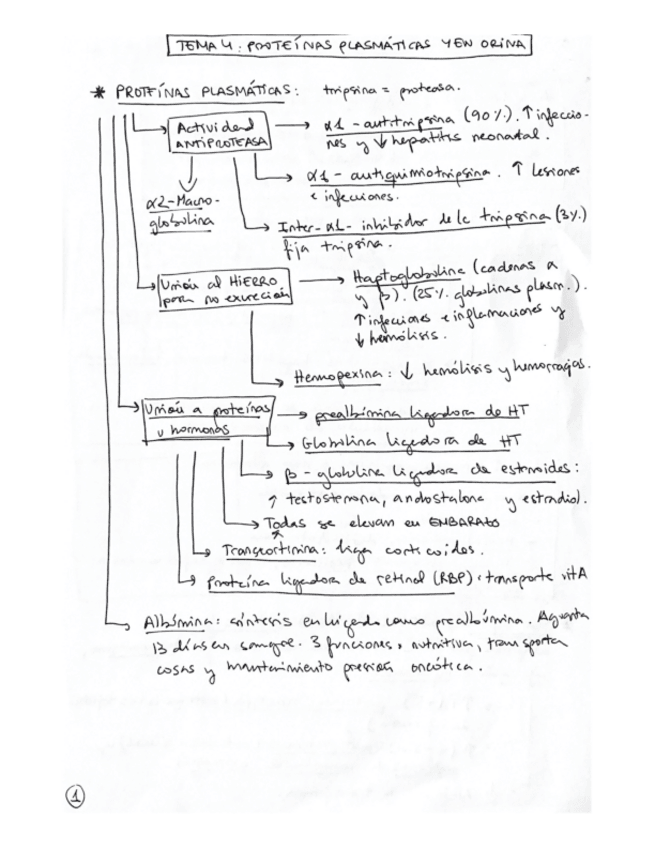 TEMA 4: PROTEÍNAS PLASMÁTICAS Y EN ORINA
* PROTEÍNAS PLASMÁTICAS: tripsina = proteasa.
Actividad ANTIPROTEASA
α2-Macroglobulina
α1-antitripsina (90%). ↑ infecciones y ↓ hepatitis neonatal.
α1-antiquimiotripsina. ↑ Lesiones e infecciones.
Inter-α1-inhibidor de la tripsina (3%) fija tripsina.
Unión al HIERRO para no excreción
Haptoglobulina (cadenas α y β). (25% globulinas plasm.).
↑ infecciones e inflamaciones y ↓ hemólisis.
Hemopexina: ↓ hemólisis y hemorragias.
Unión a proteínas y hormonas
prealbúmina ligadora de HT
Globulina ligadora de HT
β-globulina ligadora de esteroides:
↑ testosterona, andostalona y estradiol.
Todas se elevan en EMBARATO
Transcortinina: liga corticoides.
Proteína ligadora de retinol (RBP): transporte vitA
Albúmina: síntesis en hígado como prealbúmina. Aguanta
13 días en sangre. 3 funciones, nutritiva, transporta
cosas y mantenimiento presión oncótica.
1